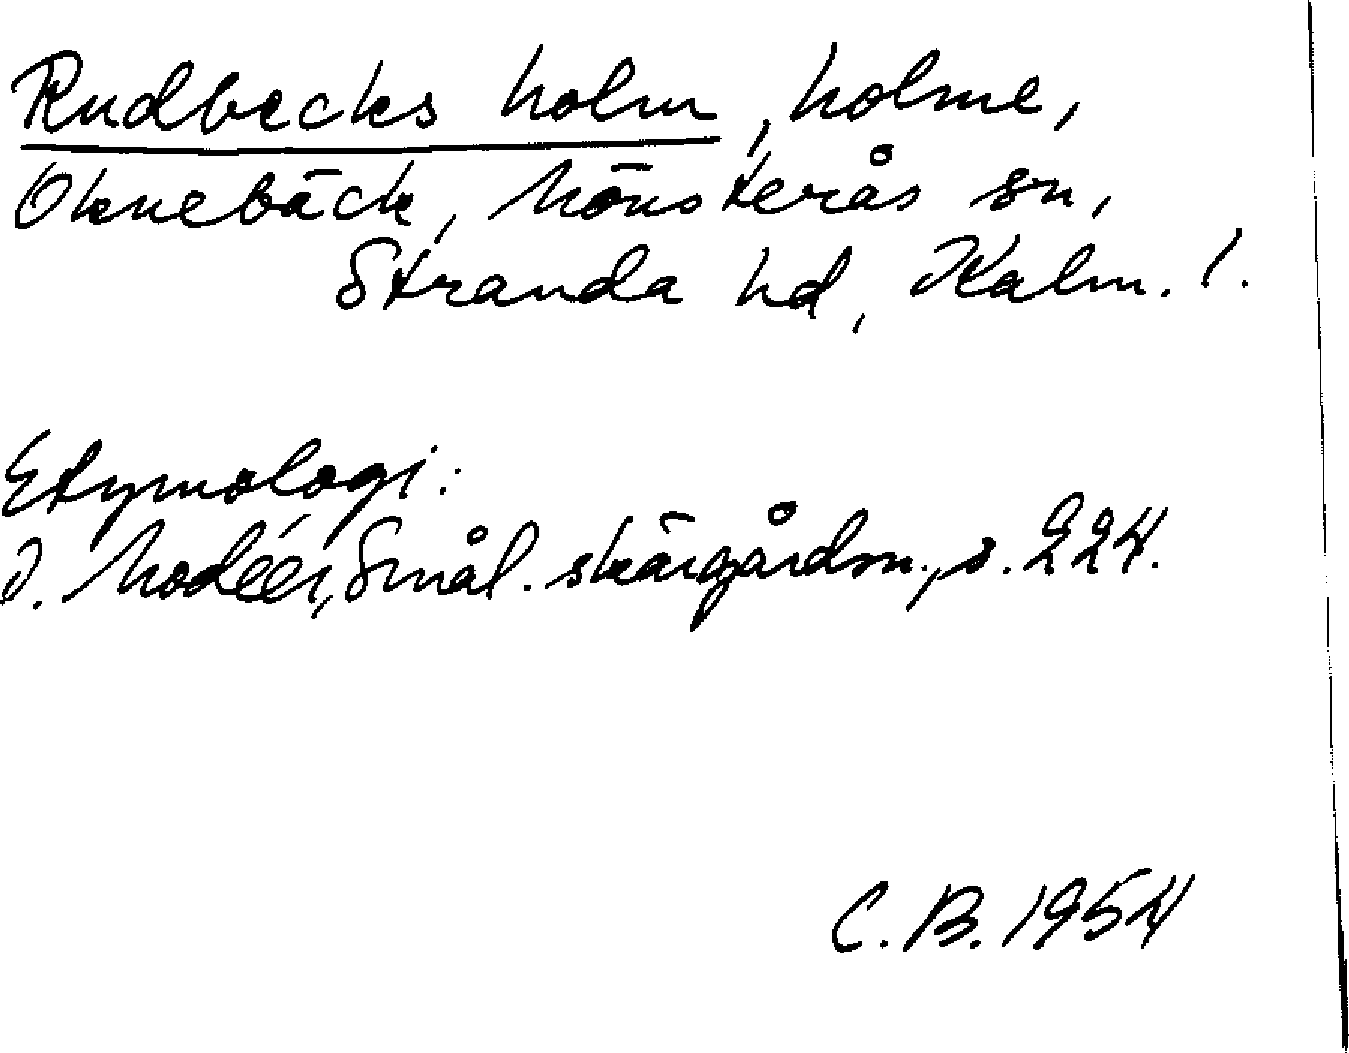 Rudbecks holm, holme,
Oknebäck, Mönsterås sn,
Stranda hd, Kalm. l.
Etymologi:
I. Modéer, Smål. skärgårdsn., s. 224.
C. B. 1954